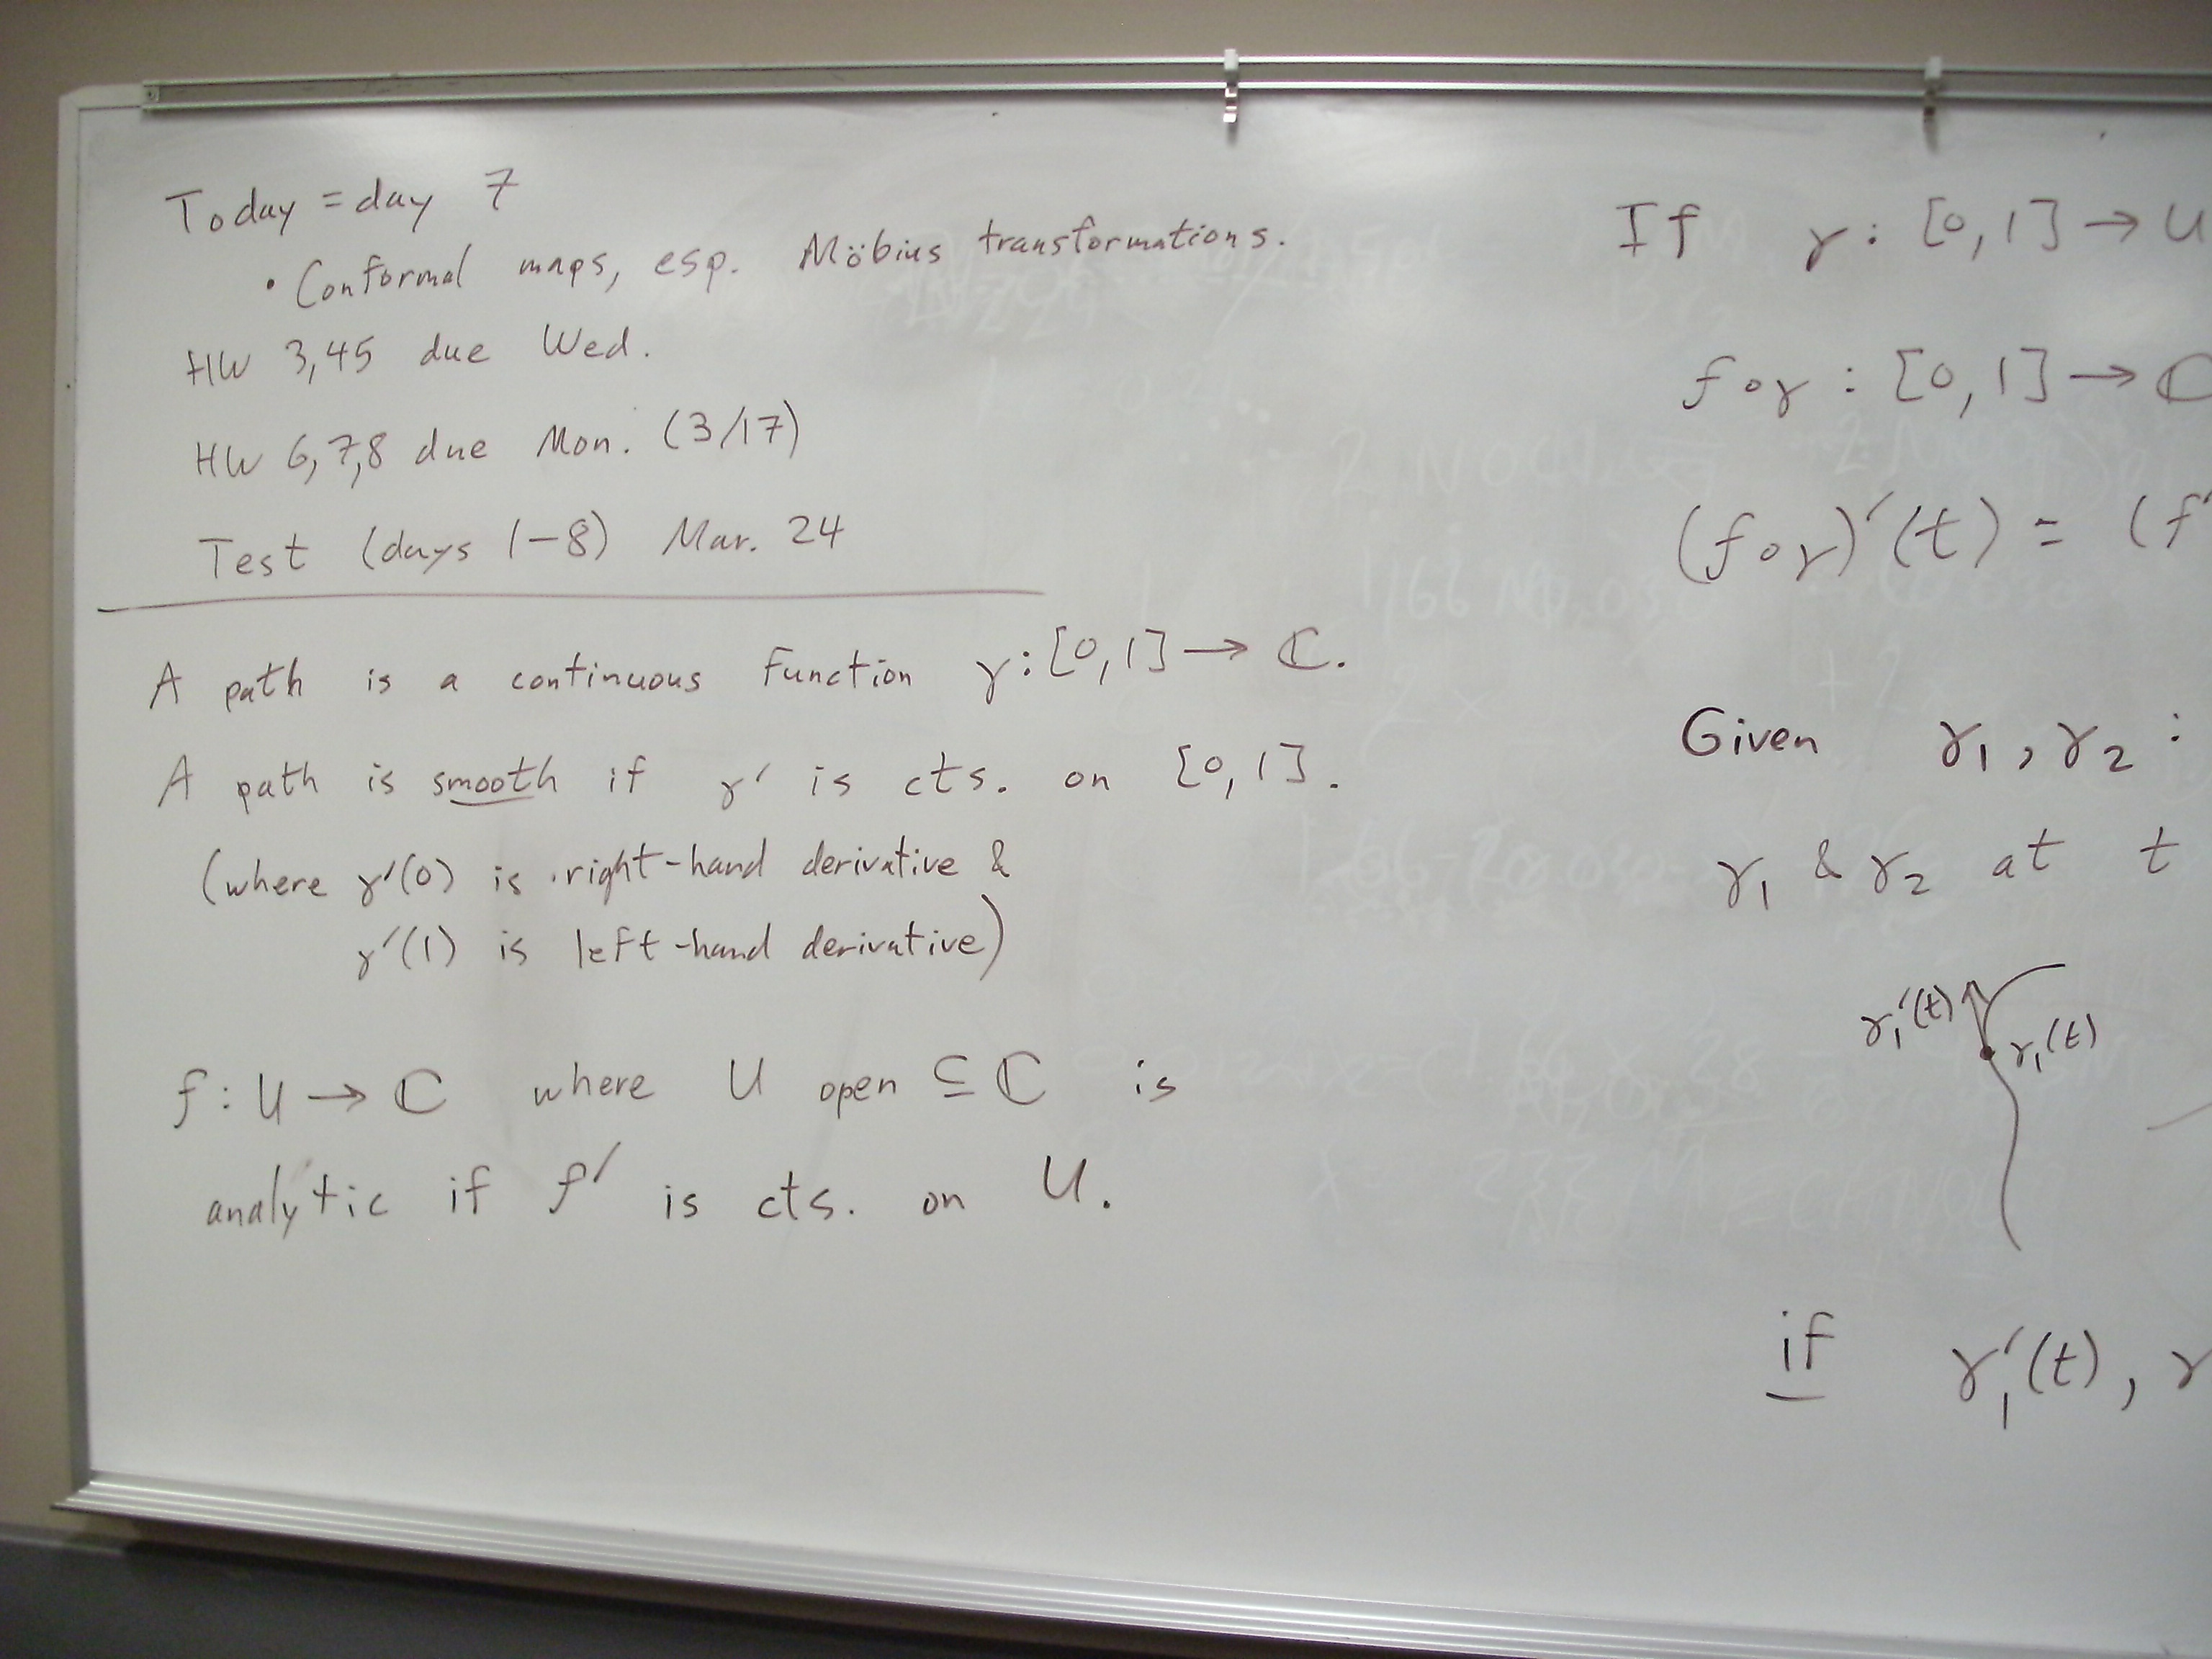 Today = day 7
• Conformal maps, esp. Möbius transformations.
HW 3,45 due Wed.
HW 6,7,8 due Mon. (3/17)
Test (days 1-8) Mar. 24
A path is a continuous function γ:[0,1]→ℂ.
A path is smooth if γ' is cts. on [0,1].
(where γ'(0) is right-hand derivative &
γ'(1) is left-hand derivative)
f:U→ℂ where U open ⊆ℂ is
analytic if f' is cts. on U.
If γ:[0,1]→U
f∘γ:[0,1]→ℂ
(f∘γ)'(t) = (f'
Given γ₁,γ₂:
γ₁ & γ₂ at t
γ₁'(t)
γ₁(t)
if γ₁'(t), γ